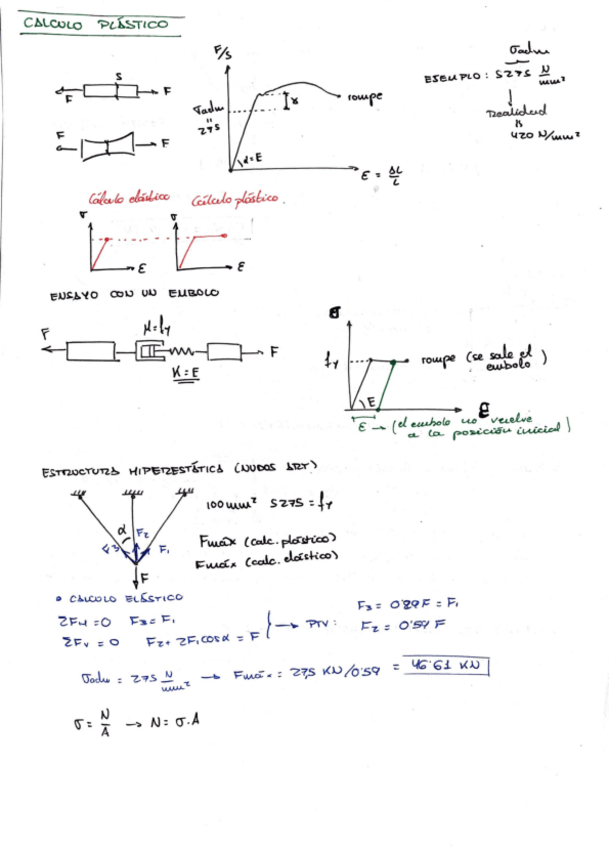 CALCULO PLÁSTICO
F/S
σadm
EJEMPLO: S275 N/mm²
S
F F
σadm
"
275
γ
rompe
Realidad
420 N/mm²
F F
α=E
ε = ΔL/L
Cálculo elástico Cálculo plástico.
σ σ
ε ε
ENSAYO CON UN EMBOLO
F μ=fy F
K=E
σ
fy rompe (se sale el embolo)
E
ε
ε → (el embolo no vuelve a la posición inicial)
ESTRUCTURA HIPERESTÁTICA (NUDOS ART)
100mm² S275 = fy
α F2
F3 F1
F
Fmáx (calc. plástico)
Fmáx (calc. elástico)
• CALCULO ELÁSTICO
ΣFH=0 F3=F1
ΣFV=0 F2+2F1cosα=F
→ PTV: F3= 0'29F = F1
F2= 0'59 F
σadm = 275 N/mm² → Fmáx = 27,5 KN/0'59 = 46'61 KN
σ = N/A → N= σ.A